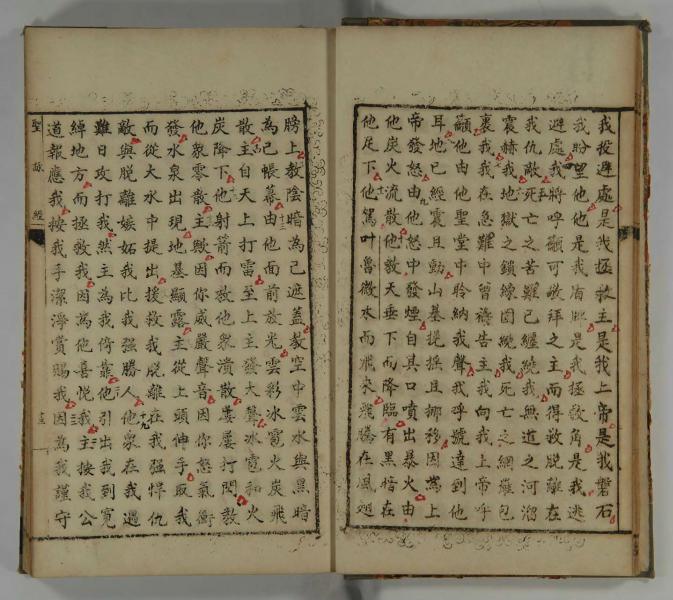 我投避處是我拯救主是我上帝是我磐石
我盼望他他是我盾牌是我拯救角是我逃
避處我將呼籲可敬拜之主而得救脫離在
我仇敵死亡之苦難已纏繞我無道之河溜
震赫我地獄之鎖鍊圍繞我死亡之網羅包
裹我我在急難中曾禱告主我向我上帝呼
籲他由他聖堂中聆納我聲我呼號達到他
耳地已經震且動山基搖且挪移因為上
帝發怒由他怒中發煙自其口噴出暴火由
他炭火流散他教天垂下而降臨有黑暗在
他足下他駕叶魯微水而飛來飛騰在風翅
膀上教陰暗為己遮蓋教空中雲水與黑暗
為己帳幕由他面前放光雲彩冰雹火炭飛
散主自天上打雷至上主發大聲冰雹和火
炭降下他射箭而放他衆潰散屢屢打閃教
他衆零散主歟因你威嚴聲音因你怒氣衝
發水泉出現地基顯露主從上頭伸手取我
而從大水中提出援救我脫離在我强悍仇
敵與脫離嫉妬我比我强勝人他衆在我遇
難日攻打我然主為我倚靠他引出我到寬
綽地方而拯救我因為他喜悅我主按我公
道報應我按我手潔淨賞賜我因為我謹守
聖詠經